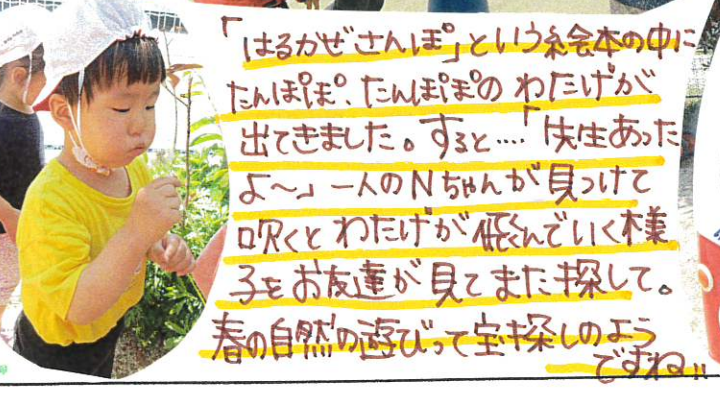 「はるかぜさんぽ」という絵本の中に
たんぽぽ、たんぽぽのわたげが
出てきました。すると....「先生あった
よ〜」一人のNちゃんが見つけて
吹くとわたげが飛んでいく様
子をお友達が見てまた探して。
春の自然の遊びって宝探しのよう
ですね!!